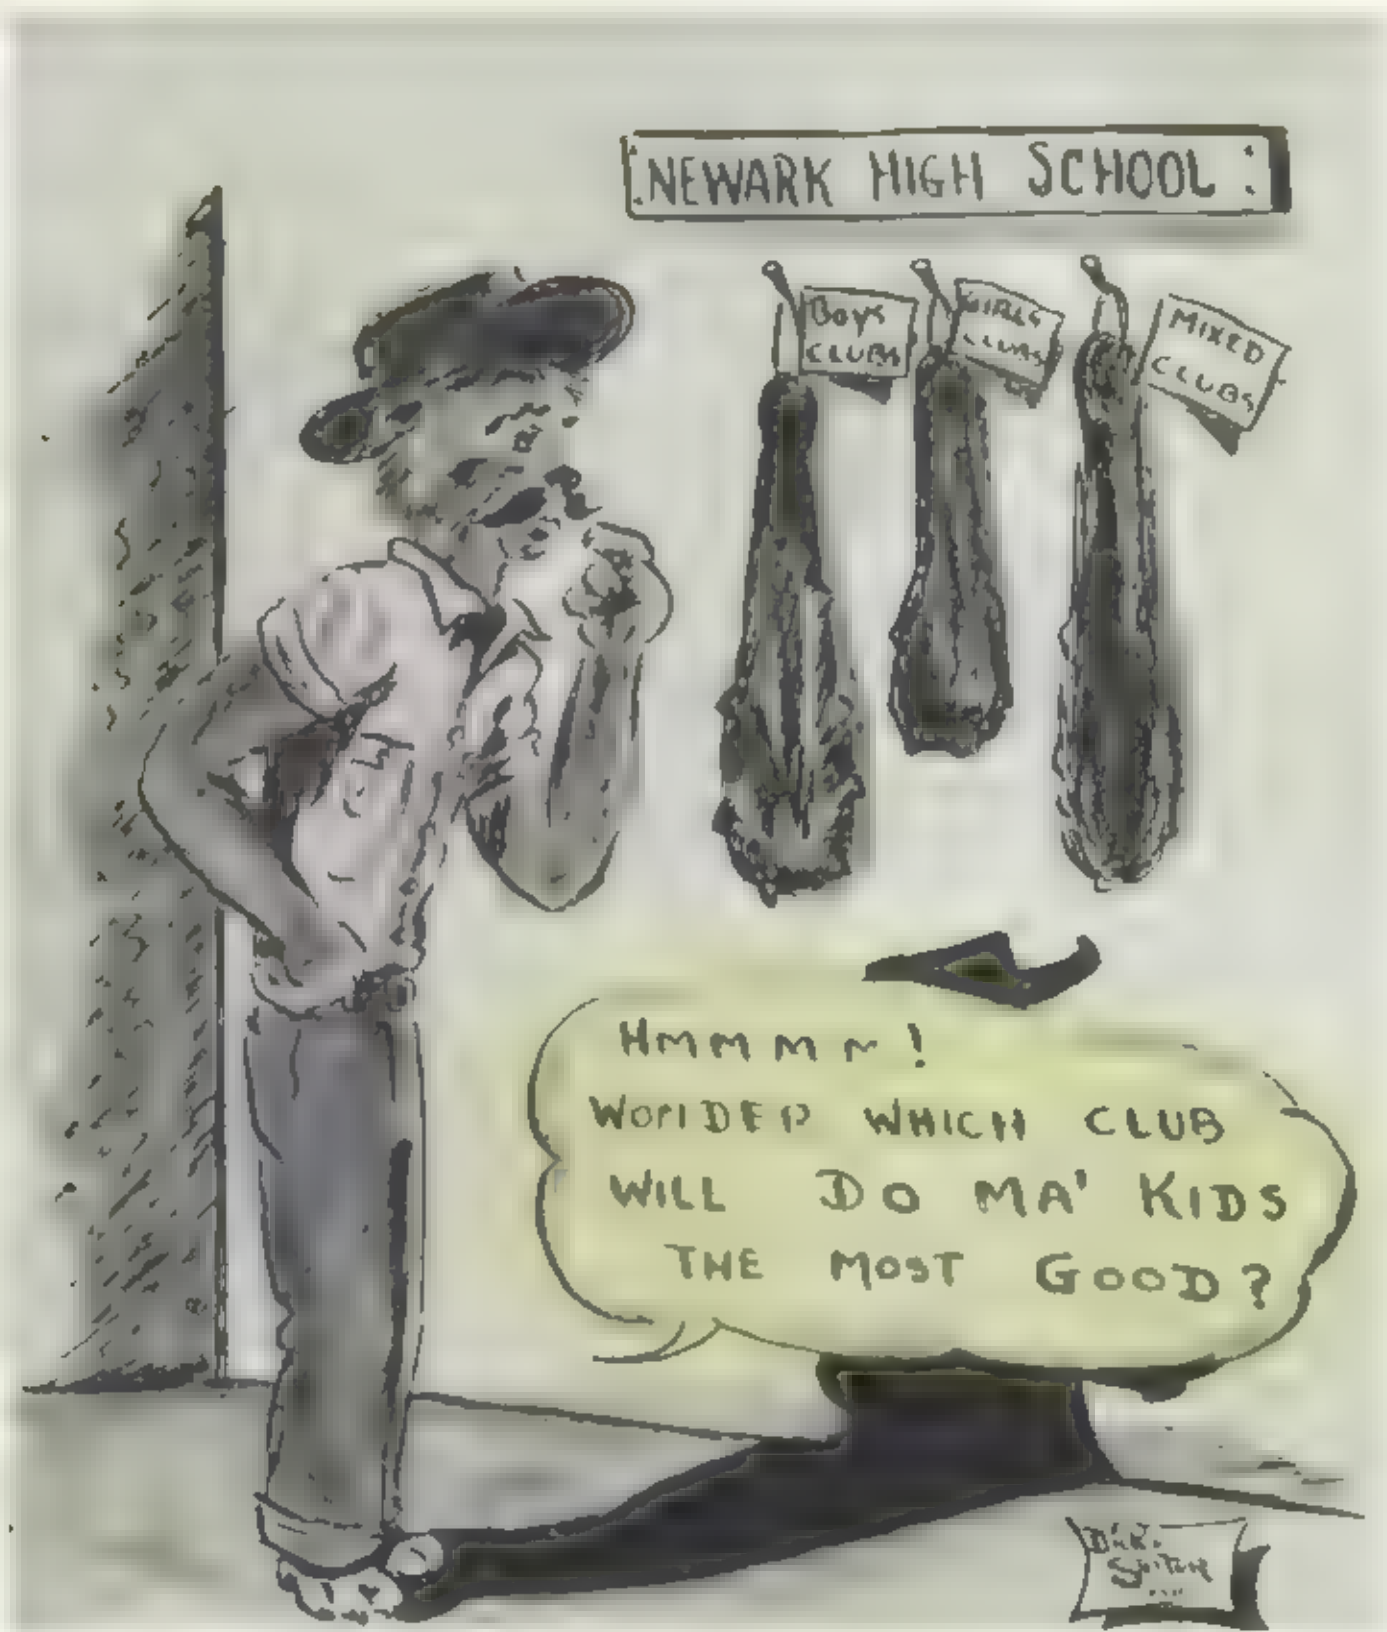 NEWARK HIGH SCHOOL :
BOYS
CLUBS
GIRLS
CLUBS
MIXED
CLUBS
HMMMM!
WONDER WHICH CLUB
WILL DO MA' KIDS
THE MOST GOOD?